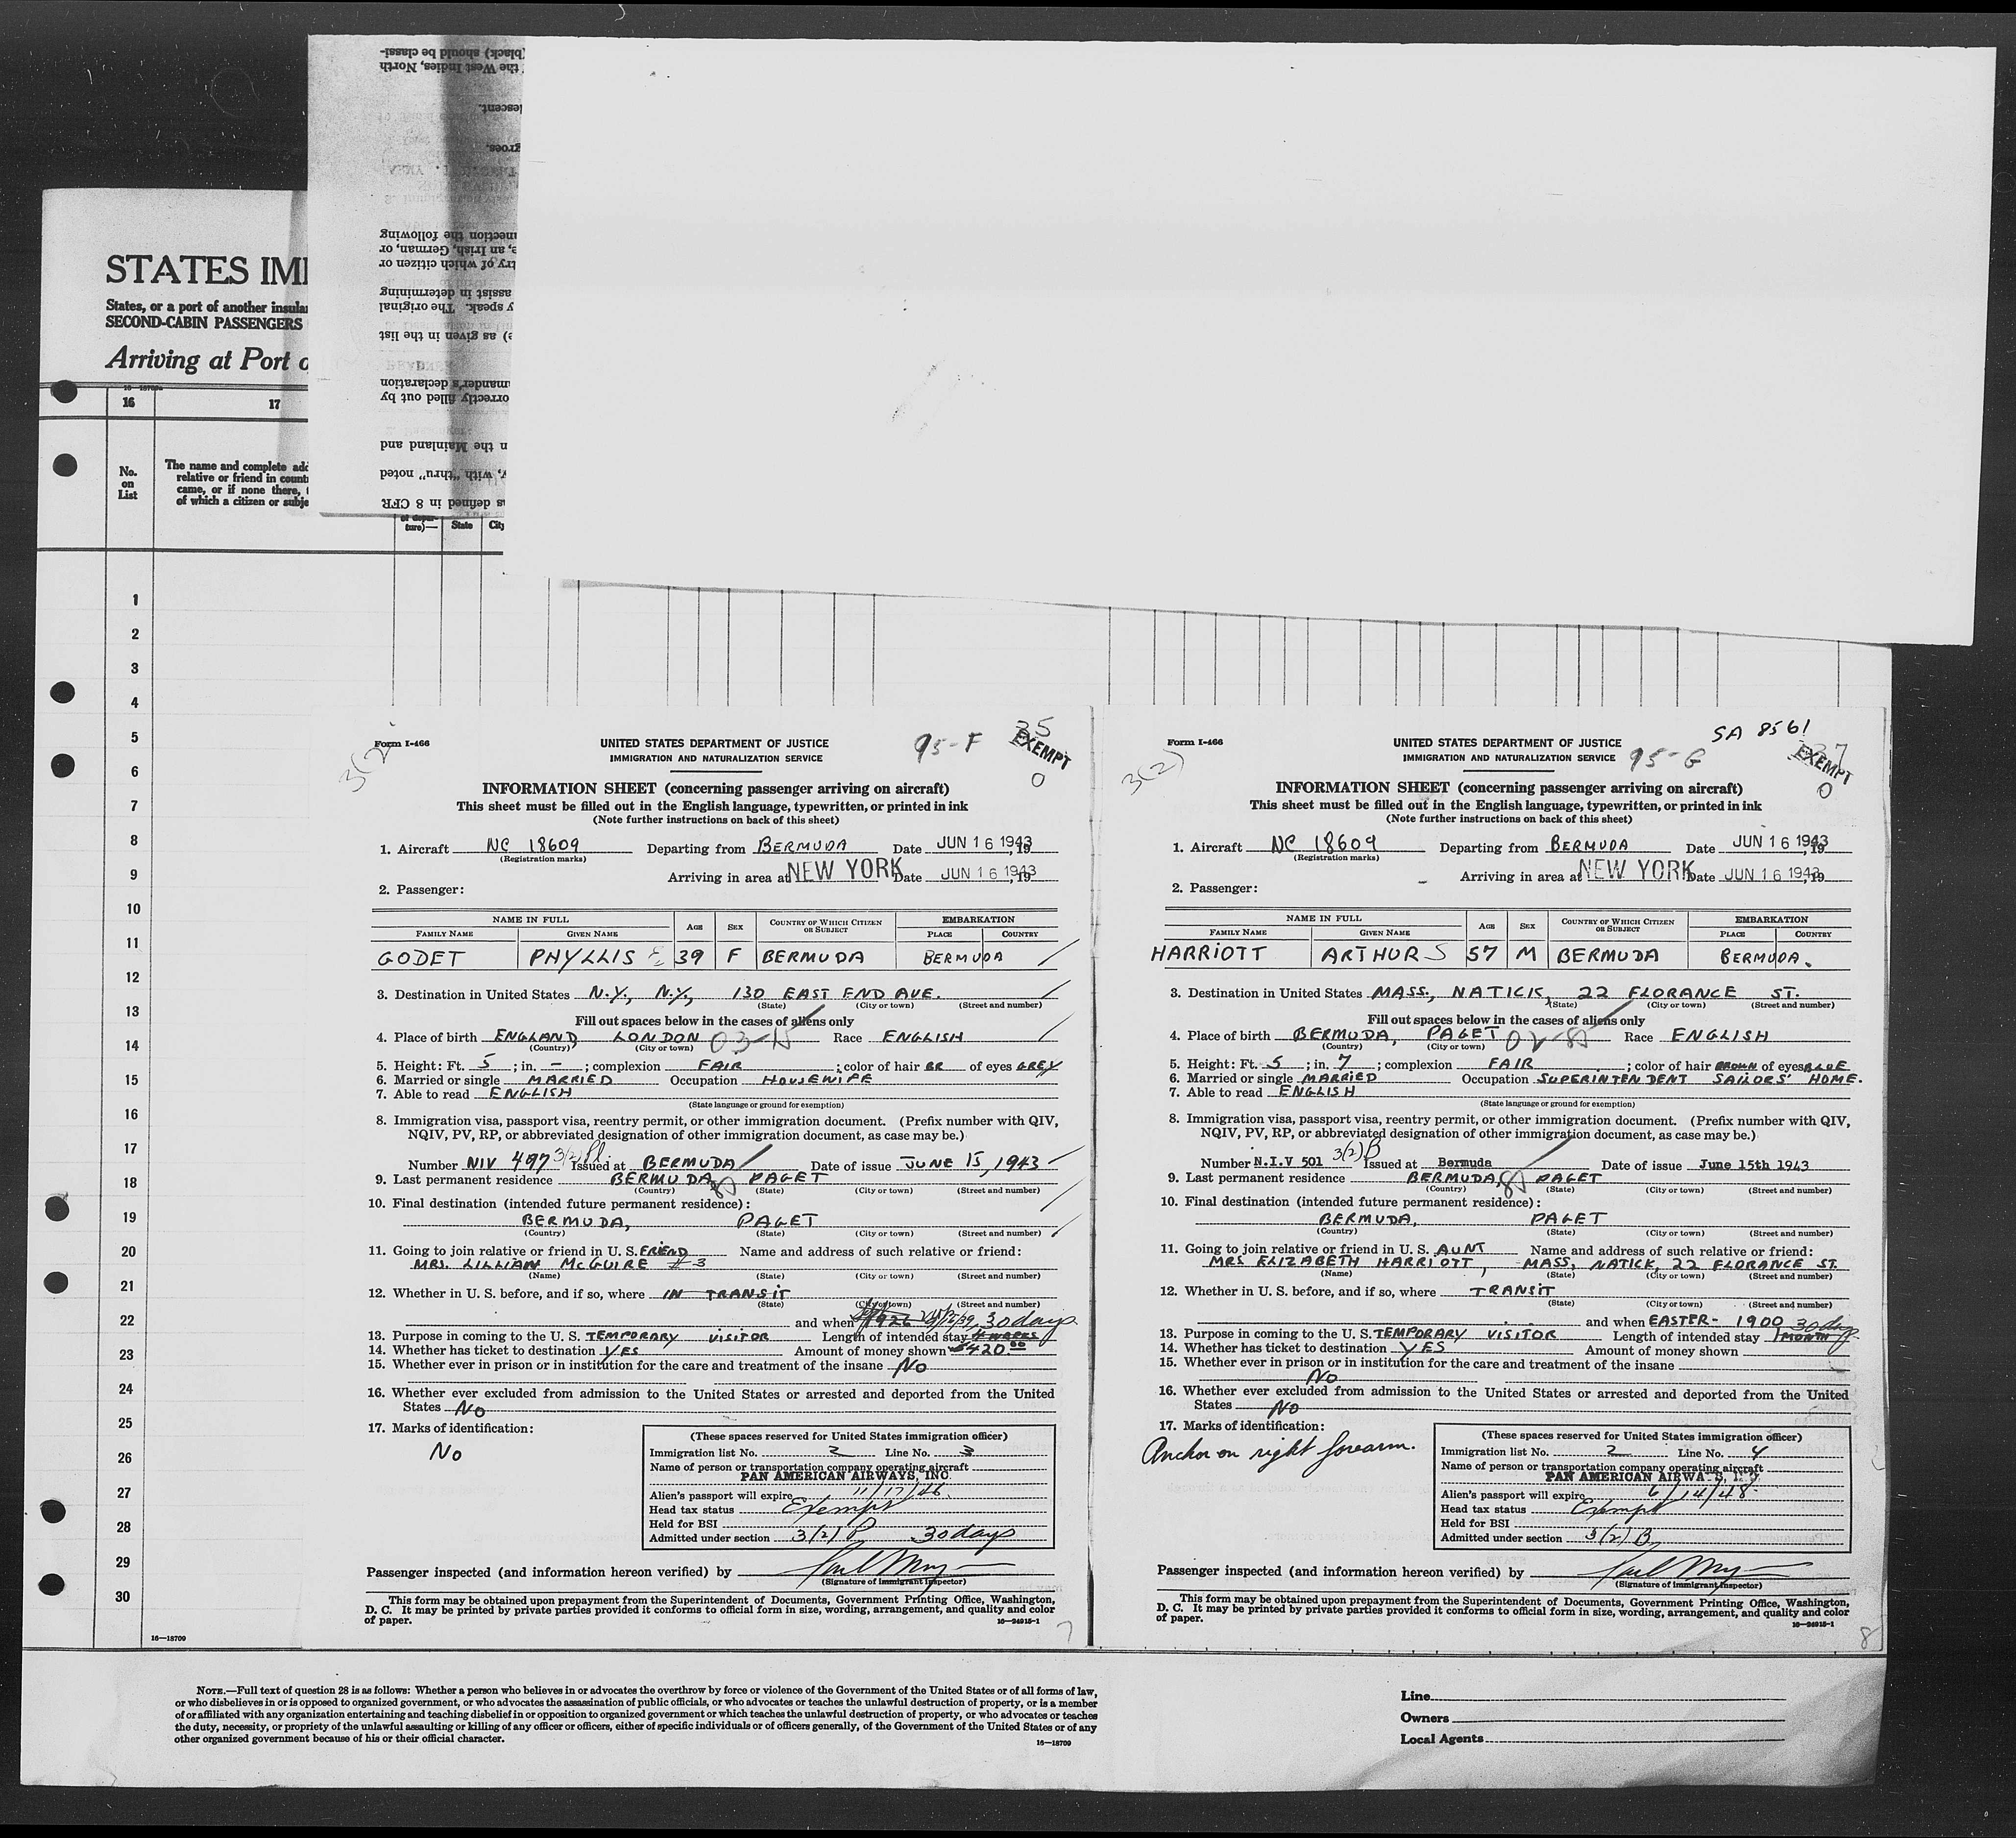 STATES IM
States, or a port of another insula
SECOND-CABIN PASSENGERS
Arriving at Port o
16—18709
16 17
No. on List
The name and complete add
relative or friend in count
came, or if none there,
of which a citizen or subje
(black) should be classi-
the West Indies, North
descent.
groes.
nnection the following
e, an Irish, German, or
try of which citizen or
assist in determining
y speak. The original
e) as given in the list
mander's declaration
orrectly filled out by
n the Mainland and
y, with "thru" noted
as defined in 8 CFR
of depar-
ture)— State City
1
2
3
4
5
6
7
8
9
10
11
12
13
14
15
16
17
18
19
20
21
22
23
24
25
26
27
28
29
30
16—18709
Form I-466
3(2)
UNITED STATES DEPARTMENT OF JUSTICE
IMMIGRATION AND NATURALIZATION SERVICE
95-F
35
EXEMPT
0
INFORMATION SHEET (concerning passenger arriving on aircraft)
This sheet must be filled out in the English language, typewritten, or printed in ink
(Note further instructions on back of this sheet)
1. Aircraft NC 18609 Departing from BERMUDA Date JUN 16 1943, 19
(Registration marks)
Arriving in area at NEW YORK Date JUN 16 1943, 19
2. Passenger:
NAME IN FULL AGE SEX COUNTRY OF WHICH CITIZEN OR SUBJECT EMBARKATION
FAMILY NAME GIVEN NAME PLACE COUNTRY
GODET PHYLLIS E 39 F BERMUDA BERMUDA
3. Destination in United States N.Y., N.Y., 130 EAST END AVE.
(State) (City or town) (Street and number)
Fill out spaces below in the cases of aliens only
4. Place of birth ENGLAND, LONDON 03-15 Race ENGLISH
(Country) (City or town)
5. Height: Ft. 5; in. -; complexion FAIR; color of hair BR of eyes GREY
6. Married or single MARRIED Occupation HOUSEWIFE
7. Able to read ENGLISH
(State language or ground for exemption)
8. Immigration visa, passport visa, reentry permit, or other immigration document. (Prefix number with QIV,
NQIV, PV, RP, or abbreviated designation of other immigration document, as case may be.)
Number NIV 497 3(2) Issued at BERMUDA Date of issue JUNE 15, 1943
9. Last permanent residence BERMUDA, PAGET
(Country) (State) (City or town) (Street and number)
10. Final destination (intended future permanent residence):
BERMUDA, PAGET
(Country) (State) (City or town) (Street and number)
11. Going to join relative or friend in U. S. FRIEND Name and address of such relative or friend:
MRS. LILLIAN McGUIRE #3
(Name) (State) (City or town) (Street and number)
12. Whether in U. S. before, and if so, where IN TRANSIT
(State) (City or town) (Street and number)
and when 1926 30 days
13. Purpose in coming to the U. S. TEMPORARY VISITOR Length of intended stay 4 WEEKS
14. Whether has ticket to destination YES Amount of money shown $420.00
15. Whether ever in prison or in institution for the care and treatment of the insane NO
16. Whether ever excluded from admission to the United States or arrested and deported from the United
States NO
17. Marks of identification:
NO
(These spaces reserved for United States immigration officer)
Immigration list No. 2 Line No. 3
Name of person or transportation company operating aircraft
PAN AMERICAN AIRWAYS, INC.
Alien's passport will expire 11/17/46.
Head tax status Exempt
Held for BSI
Admitted under section 3(2) B 30 days
Passenger inspected (and information hereon verified) by
(Signature of Immigrant Inspector)
This form may be obtained upon prepayment from the Superintendent of Documents, Government Printing Office, Washington,
D. C. It may be printed by private parties provided it conforms to official form in size, wording, arrangement, and quality and color
of paper.
16—24915-1
7
Form I-466
3(2)
UNITED STATES DEPARTMENT OF JUSTICE
IMMIGRATION AND NATURALIZATION SERVICE
95-G
SA 8561
37
EXEMPT
0
INFORMATION SHEET (concerning passenger arriving on aircraft)
This sheet must be filled out in the English language, typewritten, or printed in ink
(Note further instructions on back of this sheet)
1. Aircraft NC 18609 Departing from BERMUDA Date JUN 16 1943, 19
(Registration marks)
Arriving in area at NEW YORK Date JUN 16 1943, 19
2. Passenger:
NAME IN FULL AGE SEX COUNTRY OF WHICH CITIZEN OR SUBJECT EMBARKATION
FAMILY NAME GIVEN NAME PLACE COUNTRY
HARRIOTT ARTHUR S 57 M BERMUDA BERMUDA.
3. Destination in United States MASS., NATICK, 22 FLORANCE ST.
(State) (City or town) (Street and number)
Fill out spaces below in the cases of aliens only
4. Place of birth BERMUDA, PAGET Race ENGLISH
(Country) (City or town)
5. Height: Ft. 5; in. 7; complexion FAIR; color of hair BROWN of eyes BLUE
6. Married or single MARRIED Occupation SUPERINTENDENT SAILORS' HOME.
7. Able to read ENGLISH
(State language or ground for exemption)
8. Immigration visa, passport visa, reentry permit, or other immigration document. (Prefix number with QIV,
NQIV, PV, RP, or abbreviated designation of other immigration document, as case may be.)
Number N.I.V 501 3(2)B Issued at Bermuda Date of issue June 15th 1943
9. Last permanent residence BERMUDA, PAGET
(Country) (State) (City or town) (Street and number)
10. Final destination (intended future permanent residence):
BERMUDA, PAGET
(Country) (State) (City or town) (Street and number)
11. Going to join relative or friend in U. S. AUNT Name and address of such relative or friend:
MRS ELIZABETH HARRIOTT, MASS, NATICK, 22 FLORANCE ST.
(Name) (State) (City or town) (Street and number)
12. Whether in U. S. before, and if so, where TRANSIT
(State) (City or town) (Street and number)
and when EASTER - 1900 30 days
13. Purpose in coming to the U. S. TEMPORARY VISITOR Length of intended stay 1 MONTH
14. Whether has ticket to destination YES Amount of money shown
15. Whether ever in prison or in institution for the care and treatment of the insane
NO
16. Whether ever excluded from admission to the United States or arrested and deported from the United
States NO
17. Marks of identification:
Anchor on right forearm.
(These spaces reserved for United States immigration officer)
Immigration list No. 2 Line No. 4
Name of person or transportation company operating aircraft
PAN AMERICAN AIRWA S,
Alien's passport will expire 6/14/48.
Head tax status Exempt
Held for BSI
Admitted under section 3(2) B
Passenger inspected (and information hereon verified) by
(Signature of Immigrant Inspector)
This form may be obtained upon prepayment from the Superintendent of Documents, Government Printing Office, Washington,
D. C. It may be printed by private parties provided it conforms to official form in size, wording, arrangement, and quality and color
of paper.
16—24915-1
8
NOTE.—Full text of question 28 is as follows: Whether a person who believes in or advocates the overthrow by force or violence of the Government of the United States or of all forms of law,
or who disbelieves in or is opposed to organized government, or who advocates the assassination of public officials, or who advocates or teaches the unlawful destruction of property, or is a member
of or affiliated with any organization entertaining and teaching disbelief in or opposition to organized government or which teaches the unlawful destruction of property, or who advocates or teaches
the duty, necessity, or propriety of the unlawful assaulting or killing of any officer or officers, either of specific individuals or of officers generally, of the Government of the United States or of any
other organized government because of his or their official character.
16—18709
Line
Owners
Local Agents